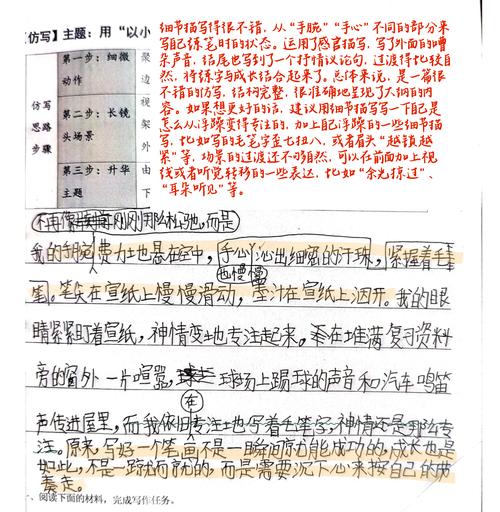 【仿写】主题：用“以小
第一步：细微
动作
聚
边
仿写
思路
步骤
第二步：长镜
头场景
视
架
外
第三步：升华
主题
由
下
细节描写得很不错，从“手腕”“手心”不同的部分来
写自己练笔时的状态。运用了感官描写，写了外面的嘈
杂声音，结尾也写到了一个抒情议论句，过渡得比较自
然，将练字与成长结合起来了。总体来说，是一篇很
不错的仿写，结构完整，很准确地呈现了大纲的内
容。如果想更好的话，建议用细节描写写一下自己是
怎么从浮躁变得专注的，加上自己浮躁的一些细节描
写，比如写的毛笔字歪七扭八，或者眉头“越皱越
紧”等，场景的过渡还不够自然，可以在前面加上视
线或者听觉转移的一些表达，比如“余光掠过”、
“耳朵听见”等。
不再像 刚刚那么松弛，而是
我的手腕费力地悬在空中，手心沁出细密的汗珠，紧握着毛
也慢慢
笔。笔尖在宣纸上慢慢滑动，墨汁在宣纸上洇开。我的眼
睛紧紧盯着宣纸，神情变地专注起来。在堆满复习资料
旁的窗外一片喧嚣，球场上踢球的声音和汽车鸣笛
在
声传进屋里，而我依旧专注地写着毛笔字，神情还是那么专
注。原来，写好一个笔画不是一瞬间就能成功的，成长也是
如此，不是一蹴而就的，而是需要沉下心来按自己的节
奏走。
一、阅读下面的材料，完成写作任务。